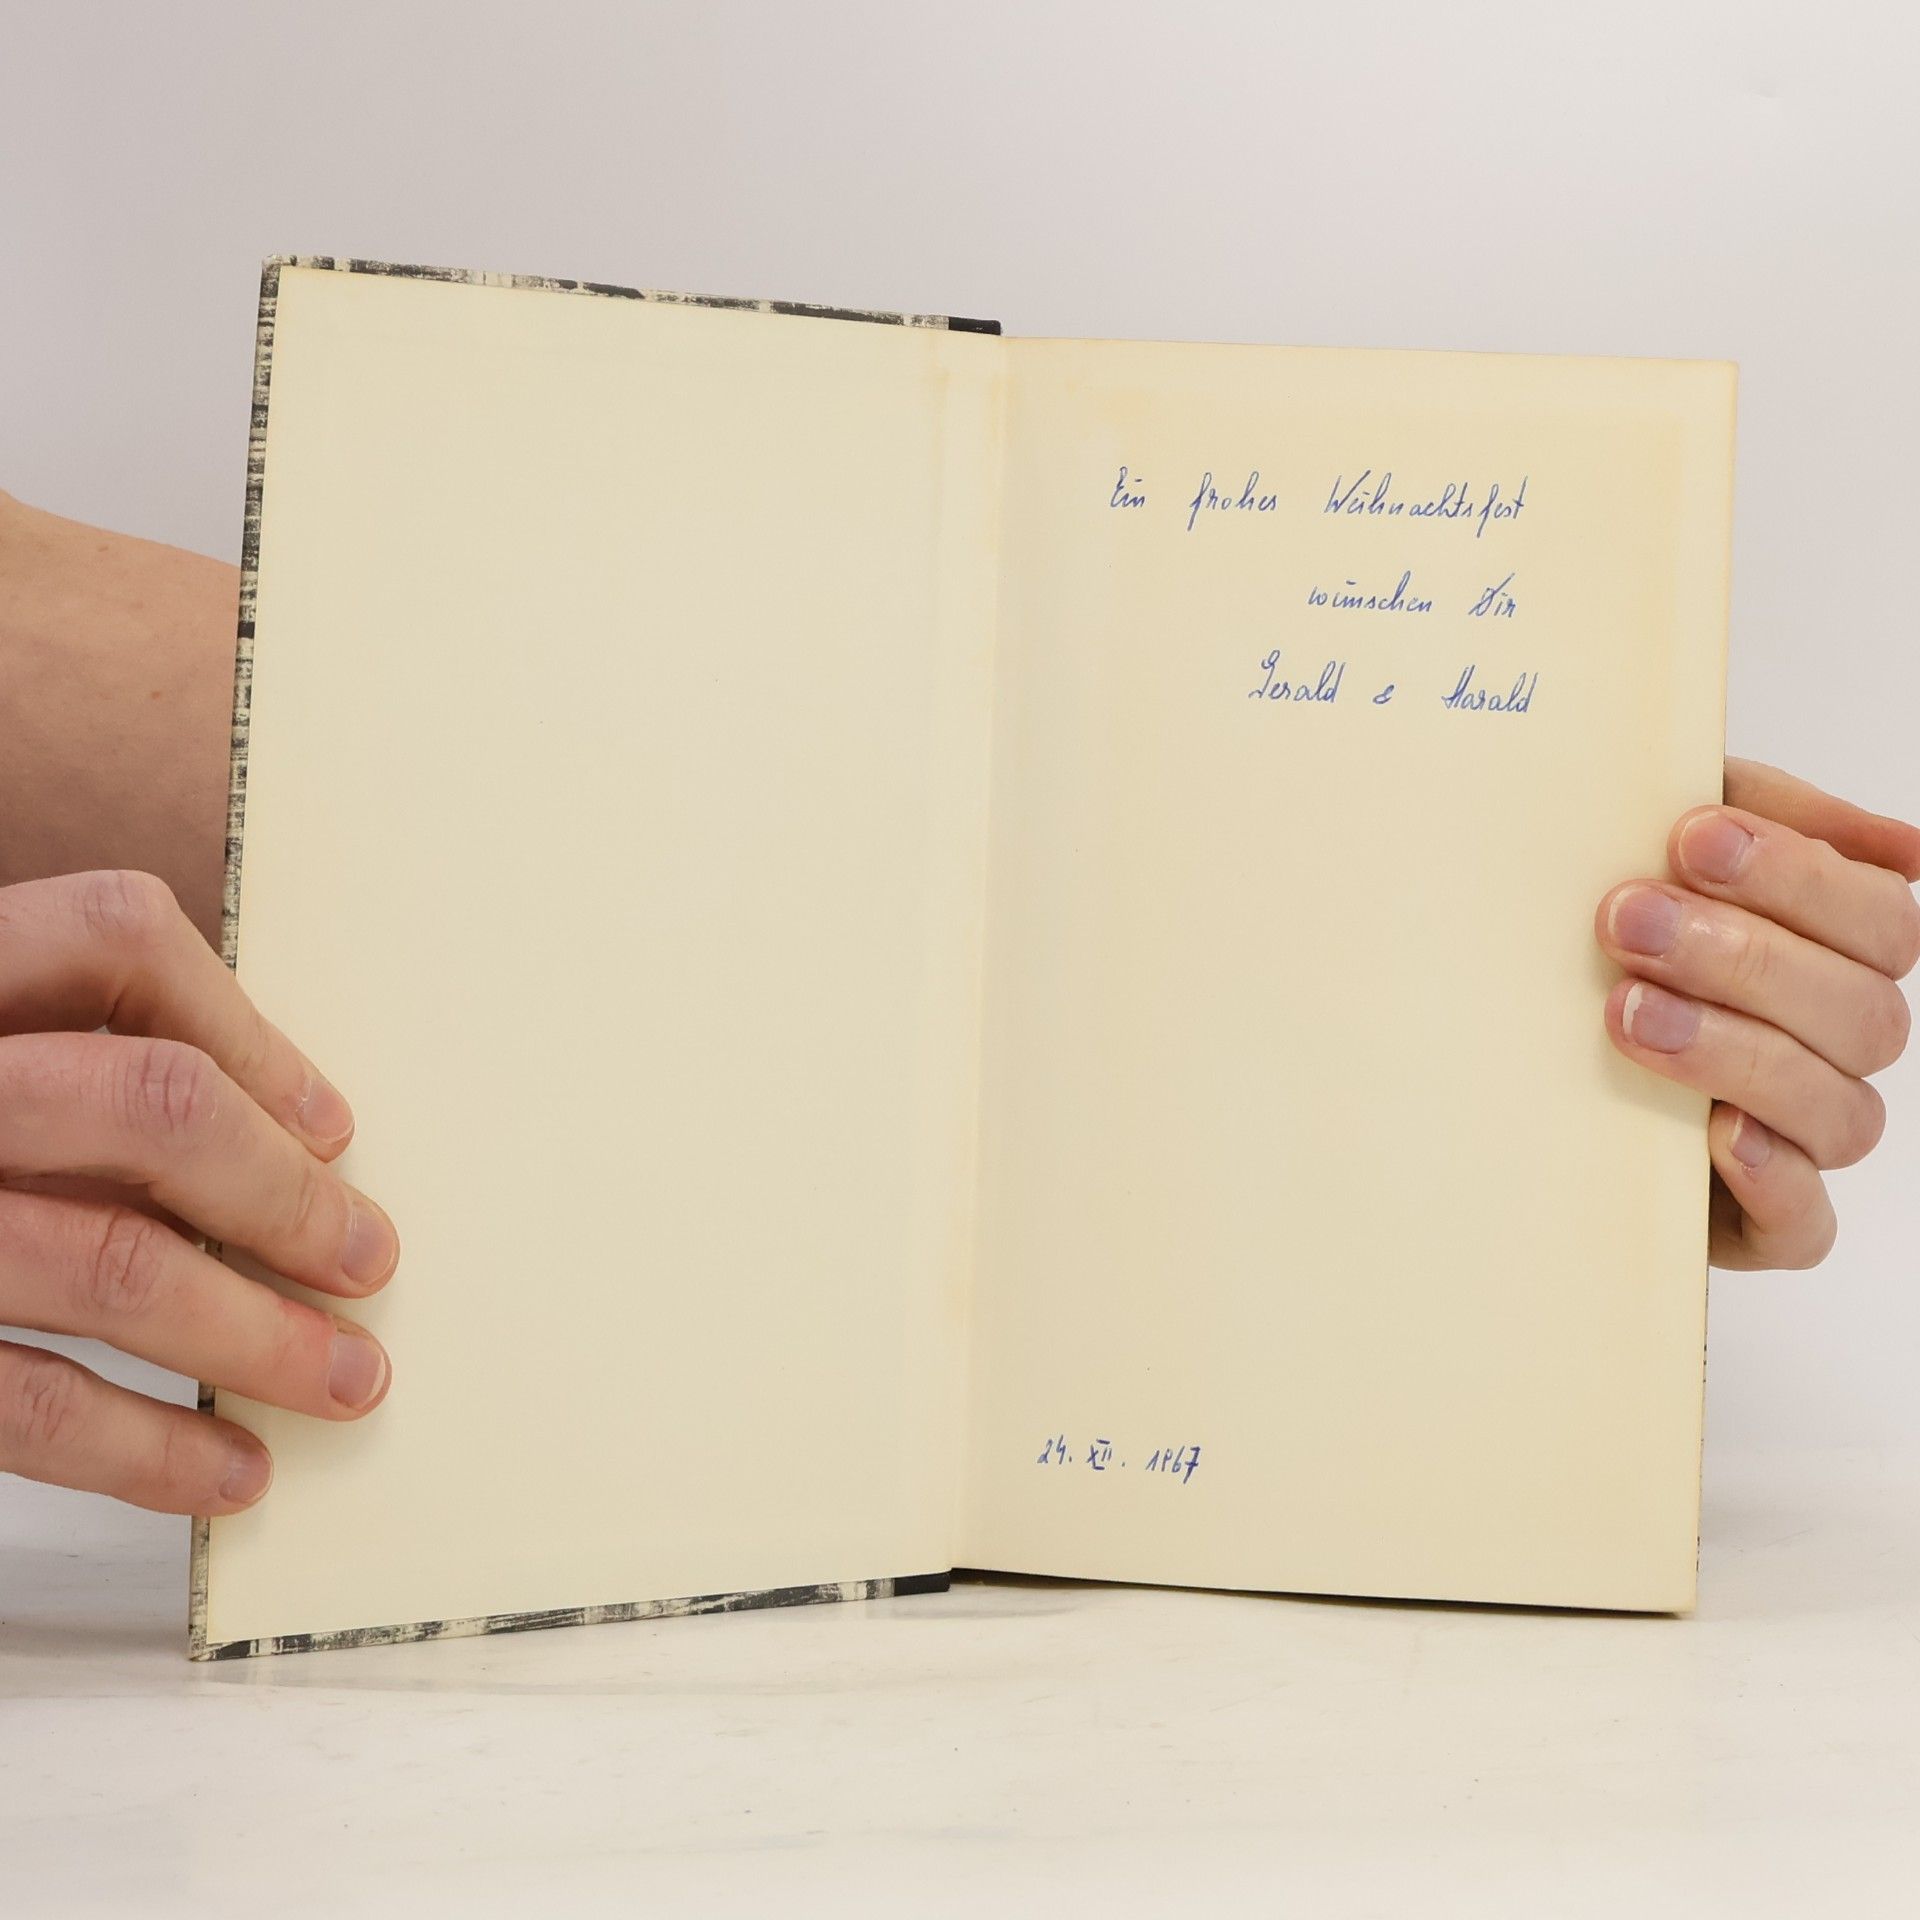 Ein frohes Weihnachtsfest
wünschen Dir
Gerald & Harald
24. XII. 1967